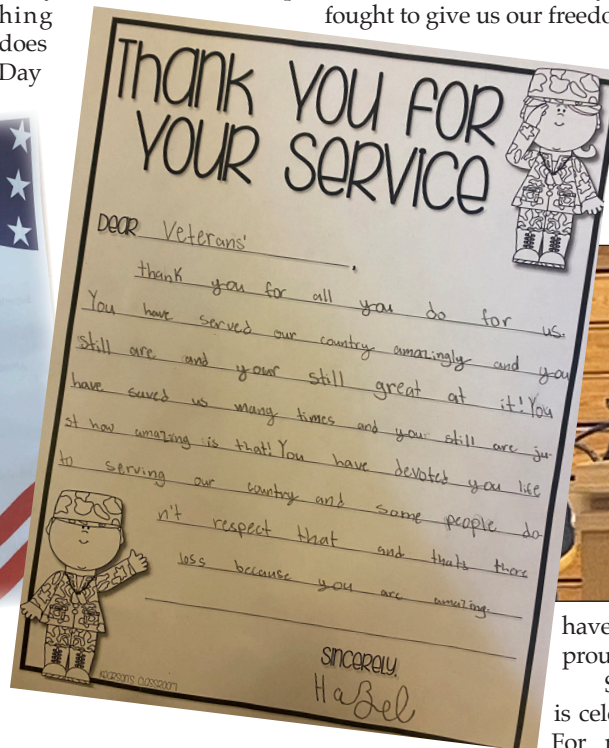 hing
does
Day
fought to give us our freedo
THANK YOU FOR
YOUR SERVICE
DEAR Veterans' ,
thank you for all you do for us.
You have served our country amazingly and you
still are and your still great at it! You
have saved us many times and you still are ju-
st how amazing is that! You have devoted you life
to serving our country and some people do-
n't respect that and thats there
loss because you are amazing.
SINCERELY,
Hazel
CLASSROOM
have
prou
S
is cele
For